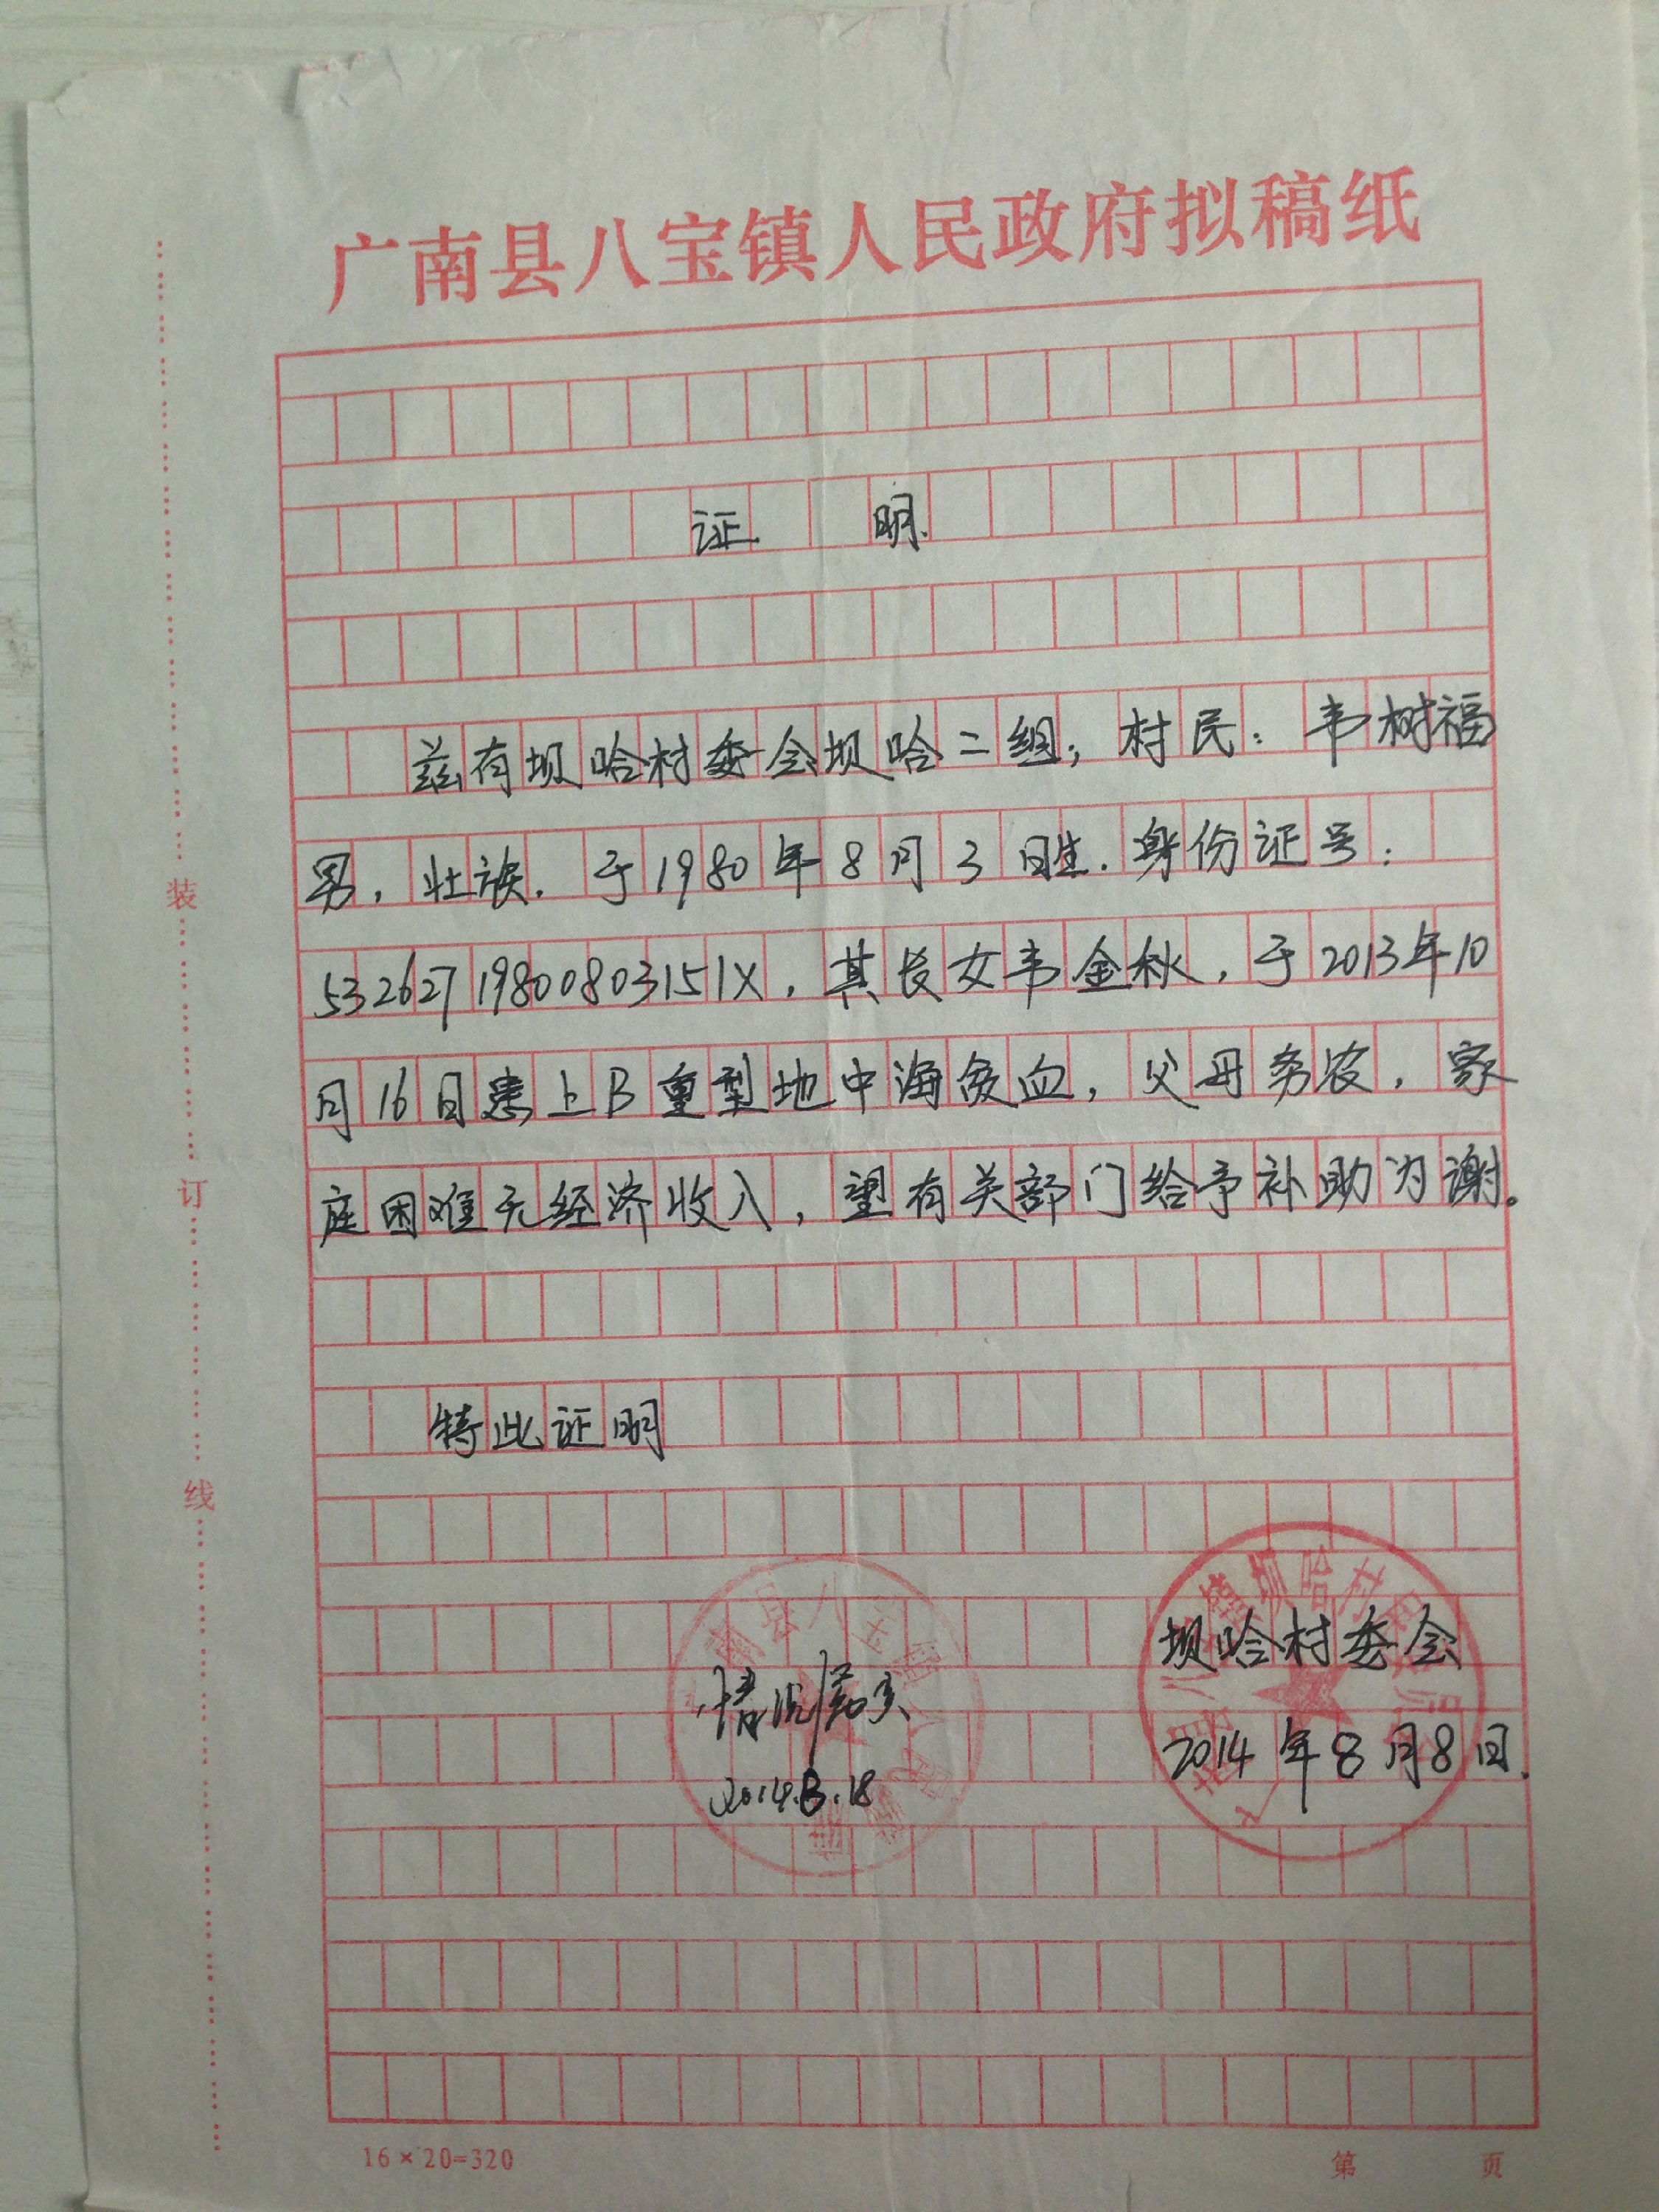 广南县八宝镇人民政府拟稿纸
证 明.
兹有坝哈村委会坝哈二组;村民:韦树福
男,壮族.于1980年8月3日生.身份证号:
53262719800803151X,其长女韦金秋,于2013年10
月16日患上B重型地中海贫血,父母务农,家
庭困难无经济收入,望有关部门给予补助为谢。
特此证明
坝哈村委会
2014年8月8日.
情况属实
2014.8.18
装
订
线
16×20=320
第 页